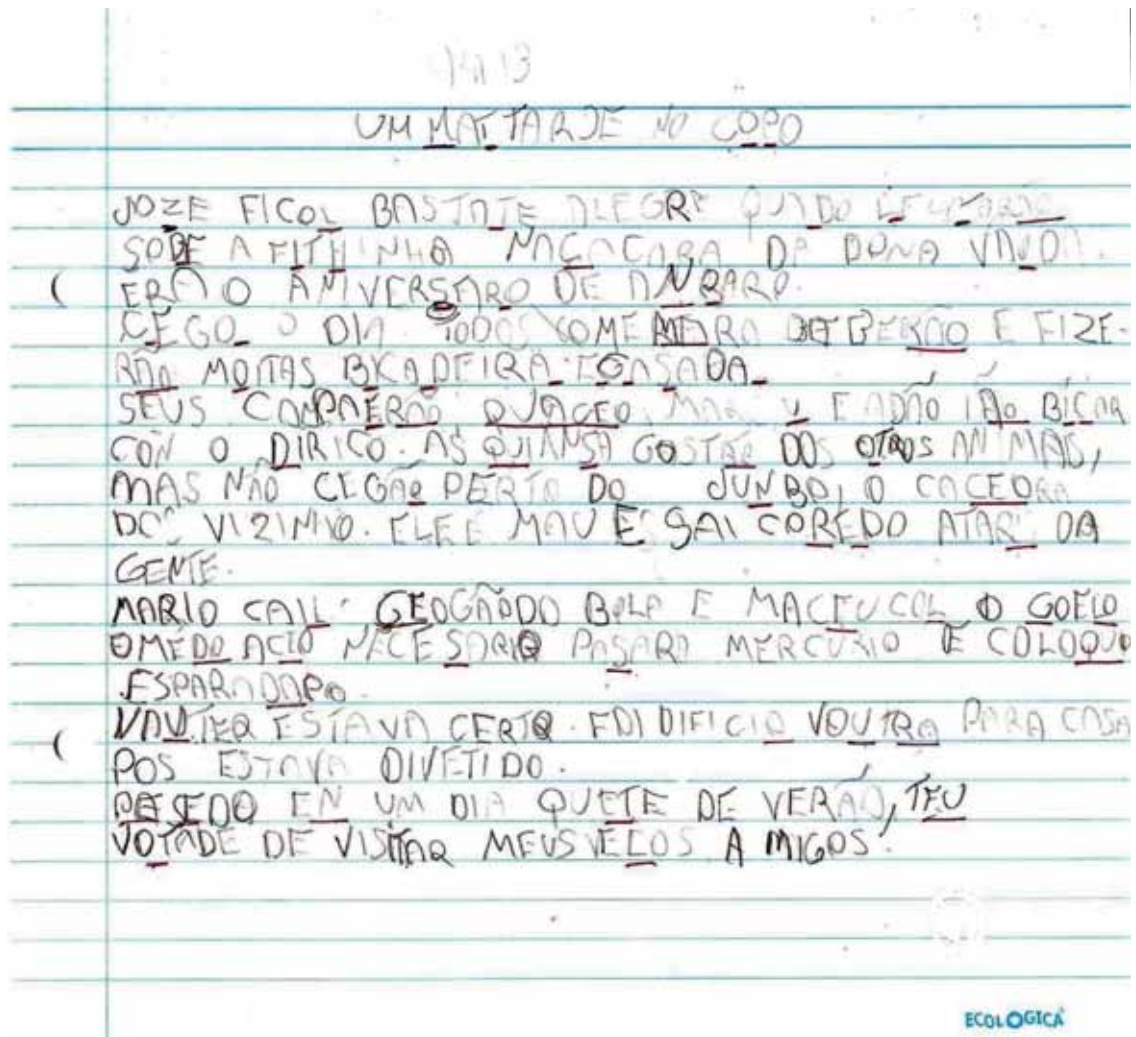 UM MAT TARDE NO COPO
JOZE FICOL BASTATE ALEGRE QUADO
SOBE A FITHINHA NA CACARA DA DONA VAUDA.
ERA O ANIVERSARO DE ANBARO.
CEGO O DIA TODOS E FIZE-
RÃO MOITAS BICADEIRA
SEUS MAR V E ADÃO IÃO BICAR
CON O DIRICO. AS QUIANSA GOSTÃO DOS OTROS ANIMAS,
MAS NÃO CEGÃO PERTO DO JUNBO, O CACEORA
DO VIZINHO. ELE E MAU E SAI COREDO ATAR DA
GENTE.
MARIO CAIL GEOGÃODO BOLA E MACEUCOL O GOELO
OMEDO ACIO NECESARIO PASARA MERCURIO E COLOQUO
ESPARADAPO.
VAUTER ESTAVA CERTO. FOI DIFICIO VOUTRA PARA CASA
POS ESTAVA DIVETIDO.
PESEDO EN UM DIA QUETE DE VERÃO, TEU
VOTADE DE VISITAR MEUS VELOS A MIGOS.
ECOLOGICA